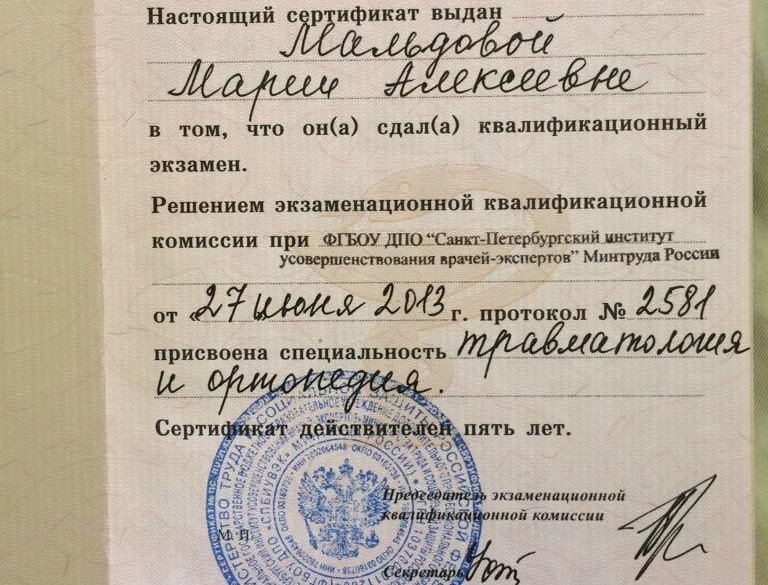 Настоящий сертификат выдан
Мальдовой
Марии Алексеевне
в том, что он(а) сдал(а) квалификационный
экзамен.
Решением экзаменационной квалификационной
комиссии при ФГБОУ ДПО “Санкт-Петербургский институт
усовершенствования врачей-экспертов” Минтруда России
от «27 июня 2013 г. протокол № 2581
присвоена специальность травматология
и ортопедия.
Сертификат действителен пять лет.
Председатель экзаменационной
квалификационной комиссии
М. П.
Секретарь